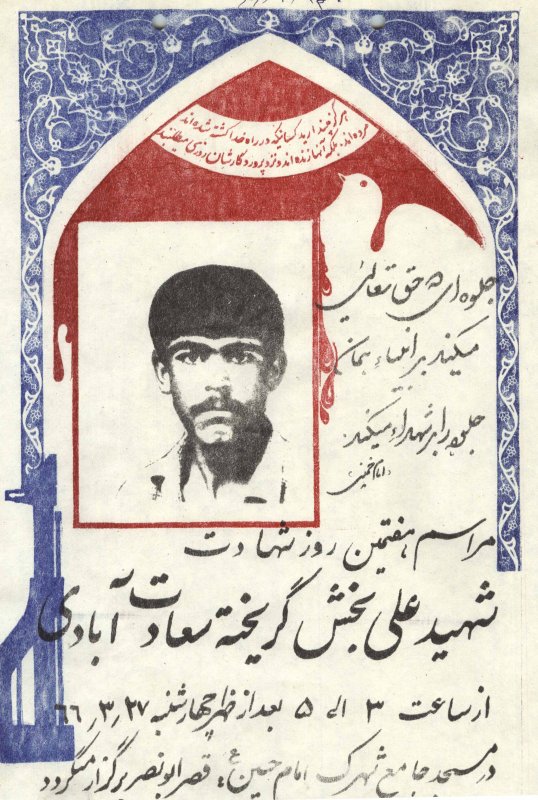 هرگز مپندارید کسانیکه در راه خدا کشته شده‌اند
مرده‌اند. بلکه آنها زنده‌اند و نزد پروردگارشان روزی میطلبند
جلوه‌ای که حق تعالی
میکند بر انبیاء همان
جلوه را بر شهداء میکند.
«امام خمینی»
مراسم هفتمین روز شهادت
شهید علی بخش گریخته سعادت آبادی
از ساعت ۳ الی ۵ بعد از ظهر چهارشنبه ۶۶٫۳٫۲۷
در مسجد جامع شهرک امام حسین (ع) قصر ابونصر برگزار میگردد